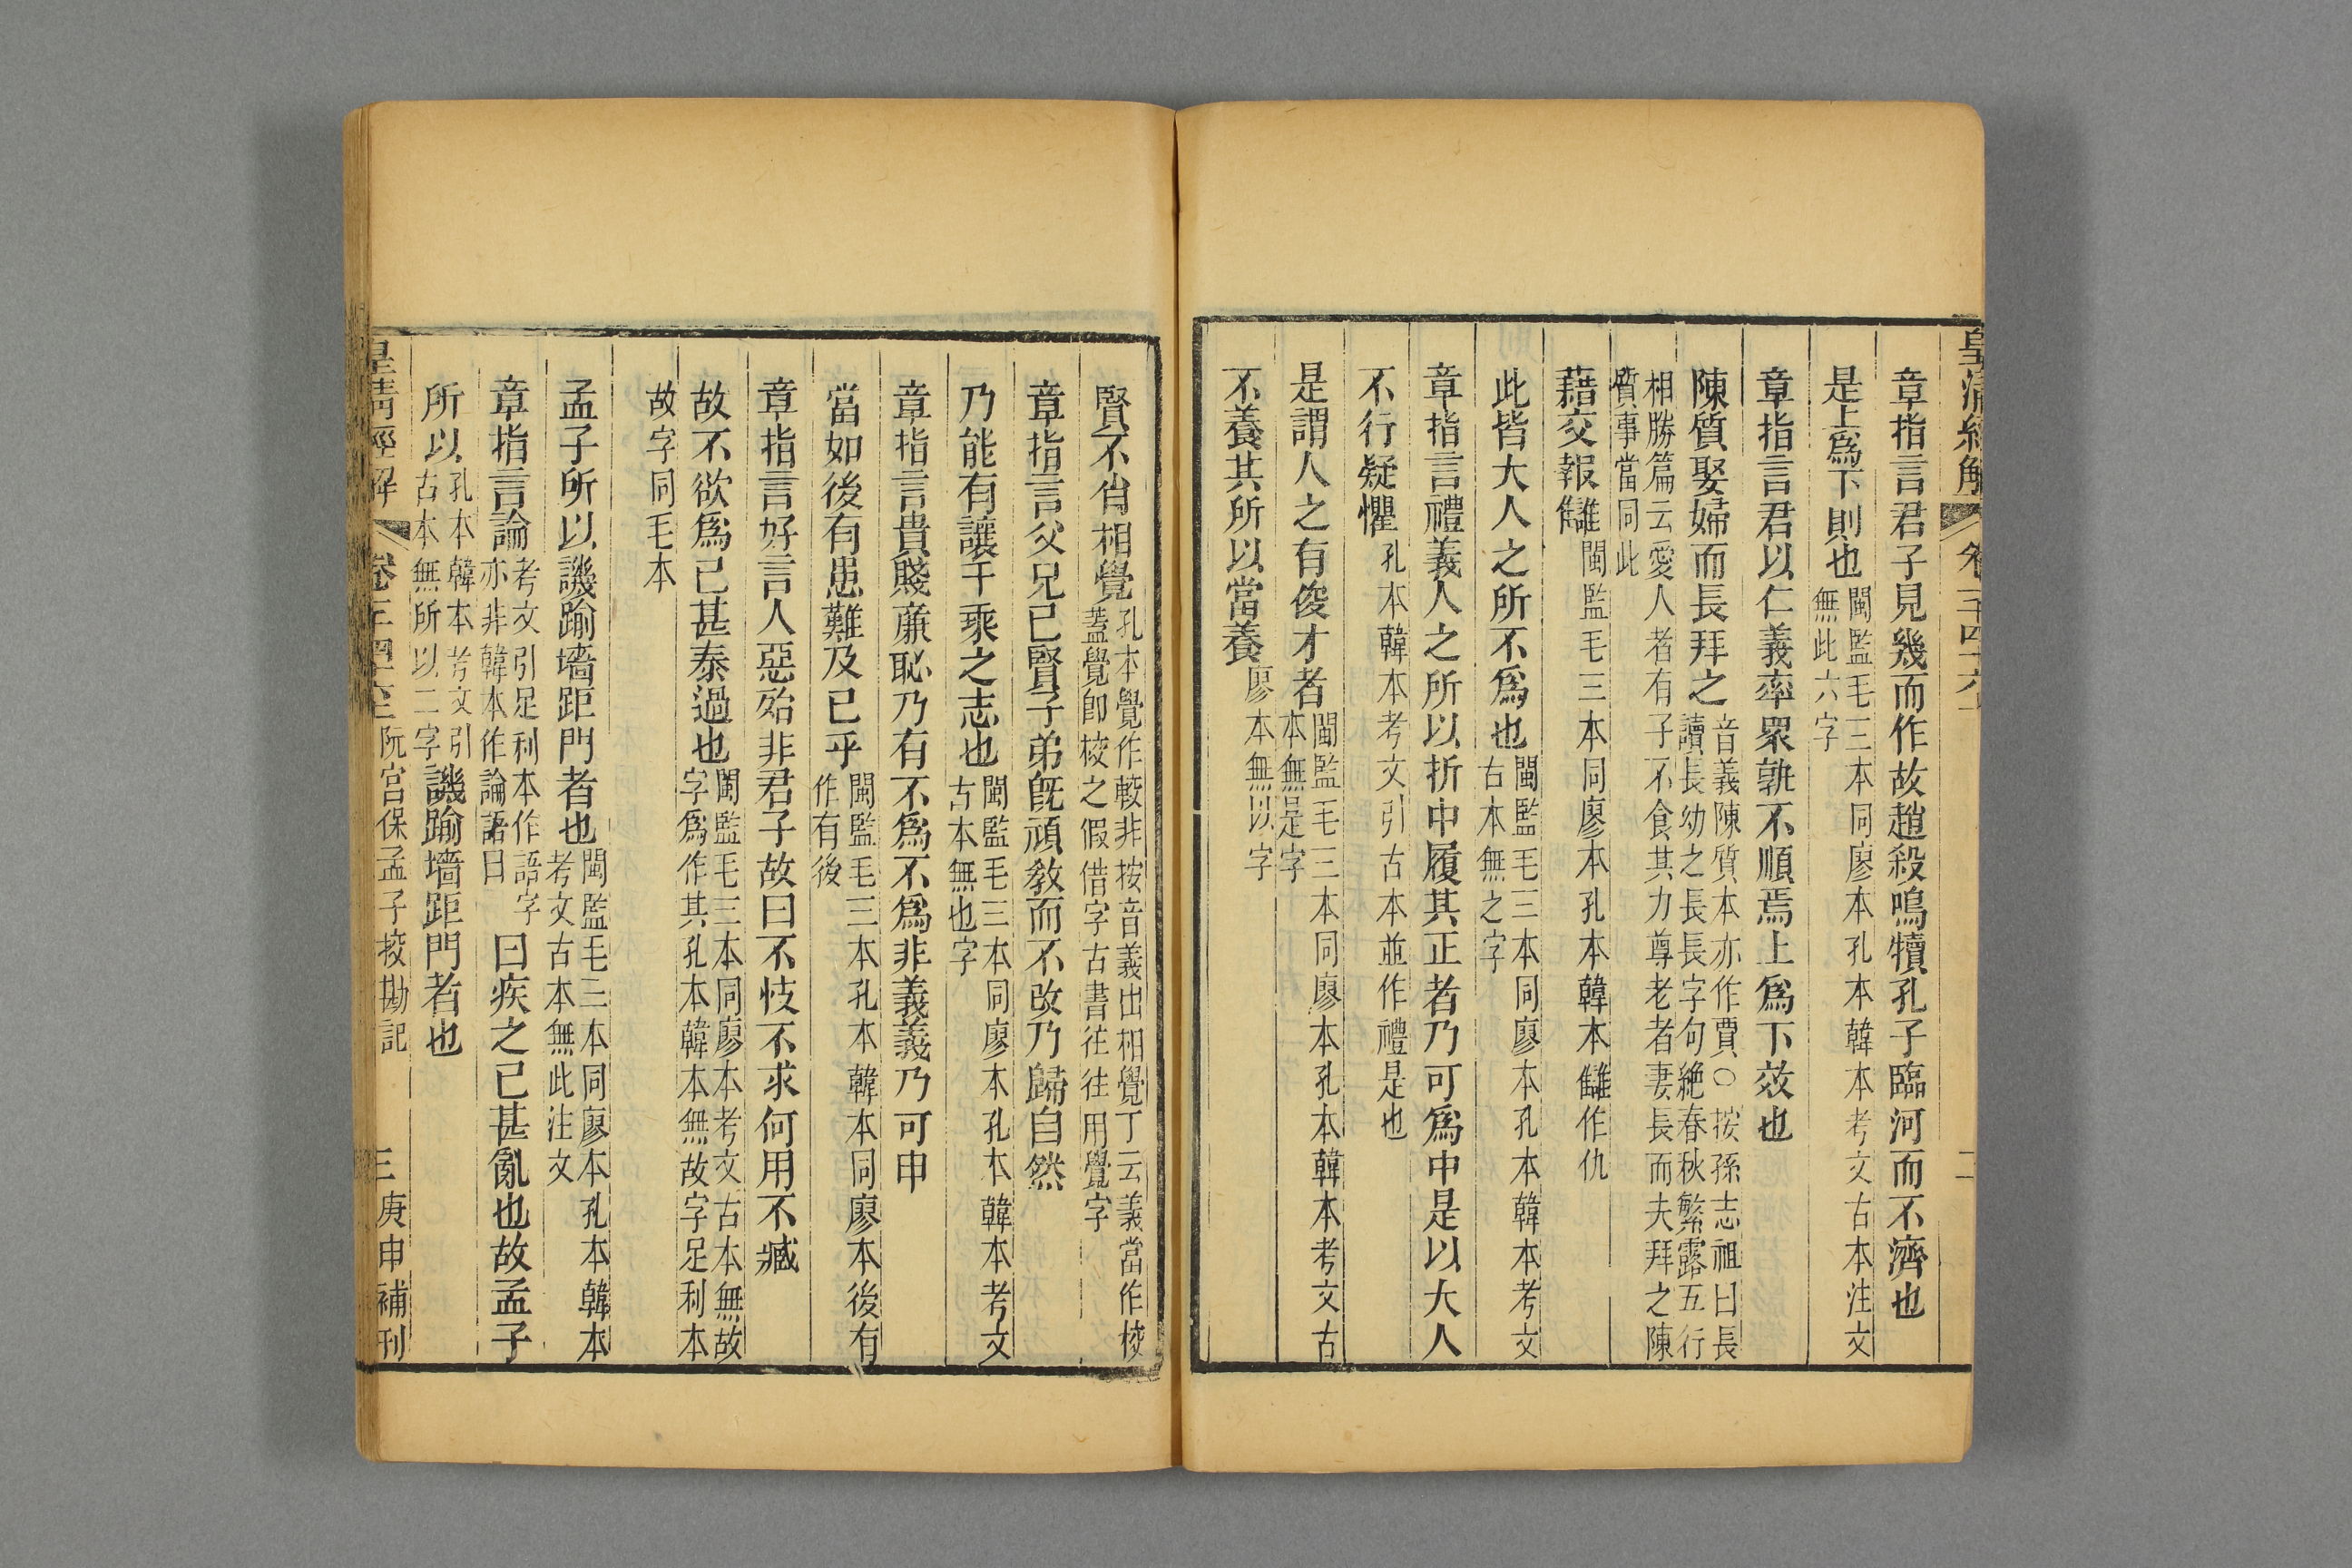 皇清經解 卷一千四十六 二
章指言君子見幾而作故趙殺鳴犢孔子臨河而不濟也
是上爲下則也閩監毛三本同廖本孔本韓本考文古本注文無此六字
章指言君以仁義率眾孰不順焉上爲下效也
陳質娶婦而長拜之音義陳質本亦作賈○按孫志祖曰長讀長幼之長長字句絶春秋繁露五行
相勝篇云愛人者有子不食其力尊老者妻長而夫拜之陳質事當同此
藉交報讎閩監毛三本同廖本孔本韓本讎作仇
此皆大人之所不爲也閩監毛三本同廖本孔本韓本考文古本無之字
章指言禮義人之所以折中履其正者乃可爲中是以大人
不行疑懼孔本韓本考文引古本並作禮是也
是謂人之有俊才者閩監毛三本同廖本孔本韓本考文古本無是字
不養其所以當養廖本無以字
賢不肖相覺孔本覺作較非按音義出相覺丁云義當作校蓋覺卽校之假借字古書往往用覺字
章指言父兄已賢子弟旣頑教而不改乃歸自然
乃能有讓千乘之志也閩監毛三本同廖本孔本韓本考文古本無也字
章指言貴賤廉恥乃有不爲不爲非義義乃可申
當如後有患難及已乎閩監毛三本孔本韓本同廖本後有作有後
章指言好言人惡殆非君子故曰不忮不求何用不臧
故不欲爲已甚泰過也閩監毛三本同廖本考文古本無故字爲作其孔本韓本無故字足利本
故字同毛本
孟子所以譏踰墻距門者也閩監毛三本同廖本孔本韓本考文古本無此注文
章指言論考文引足利本作語字亦非韓本作論語曰曰疾之已甚亂也故孟子
所以孔本韓本考文引古本無所以二字譏踰墻距門者也
皇清經解 卷 阮宮保孟子挍勘記 三 庚申補刊